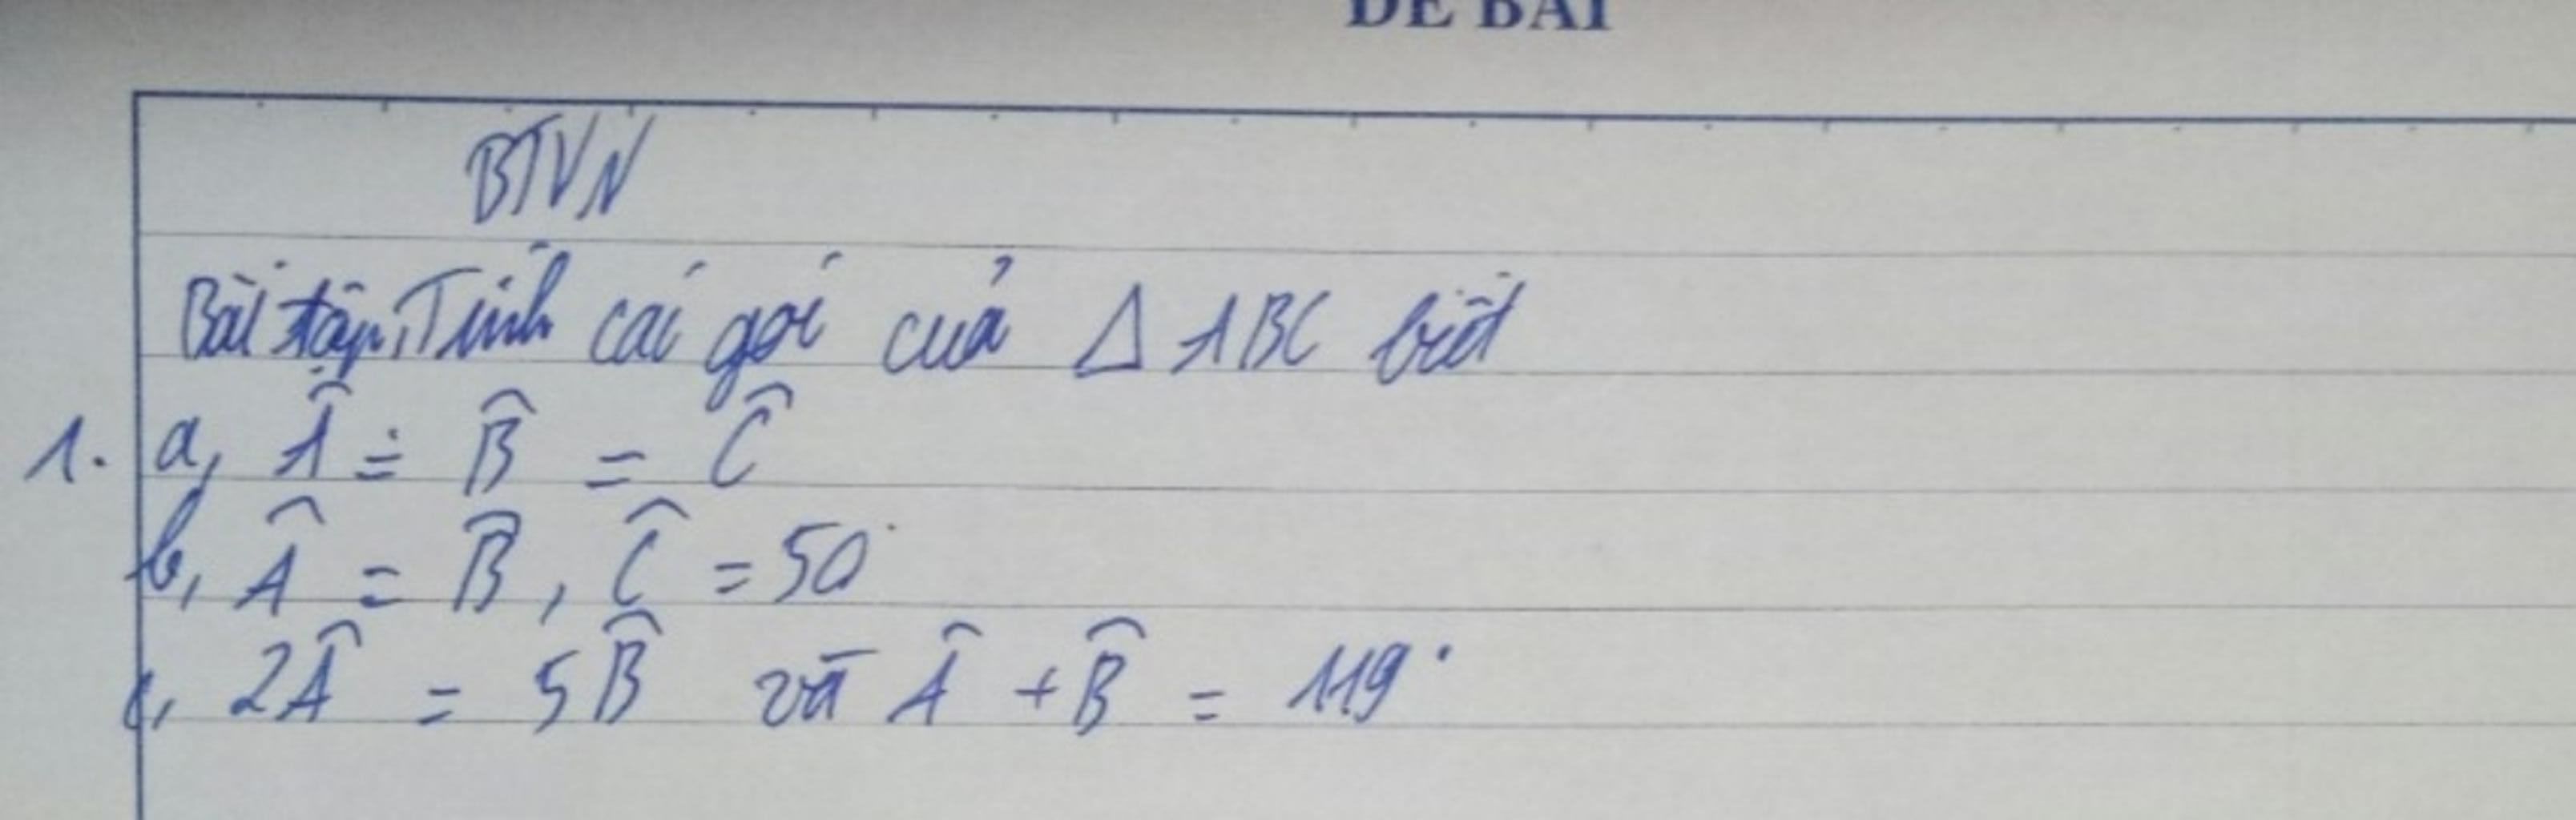 ĐỀ BÀI
BTVN
Bài tập, Tính các góc của Δ ABC biết
1. a, Â = B̂ = Ĉ
b, Â = B̂, Ĉ = 50°
c, 2Â = 5B̂ và Â + B̂ = 119°